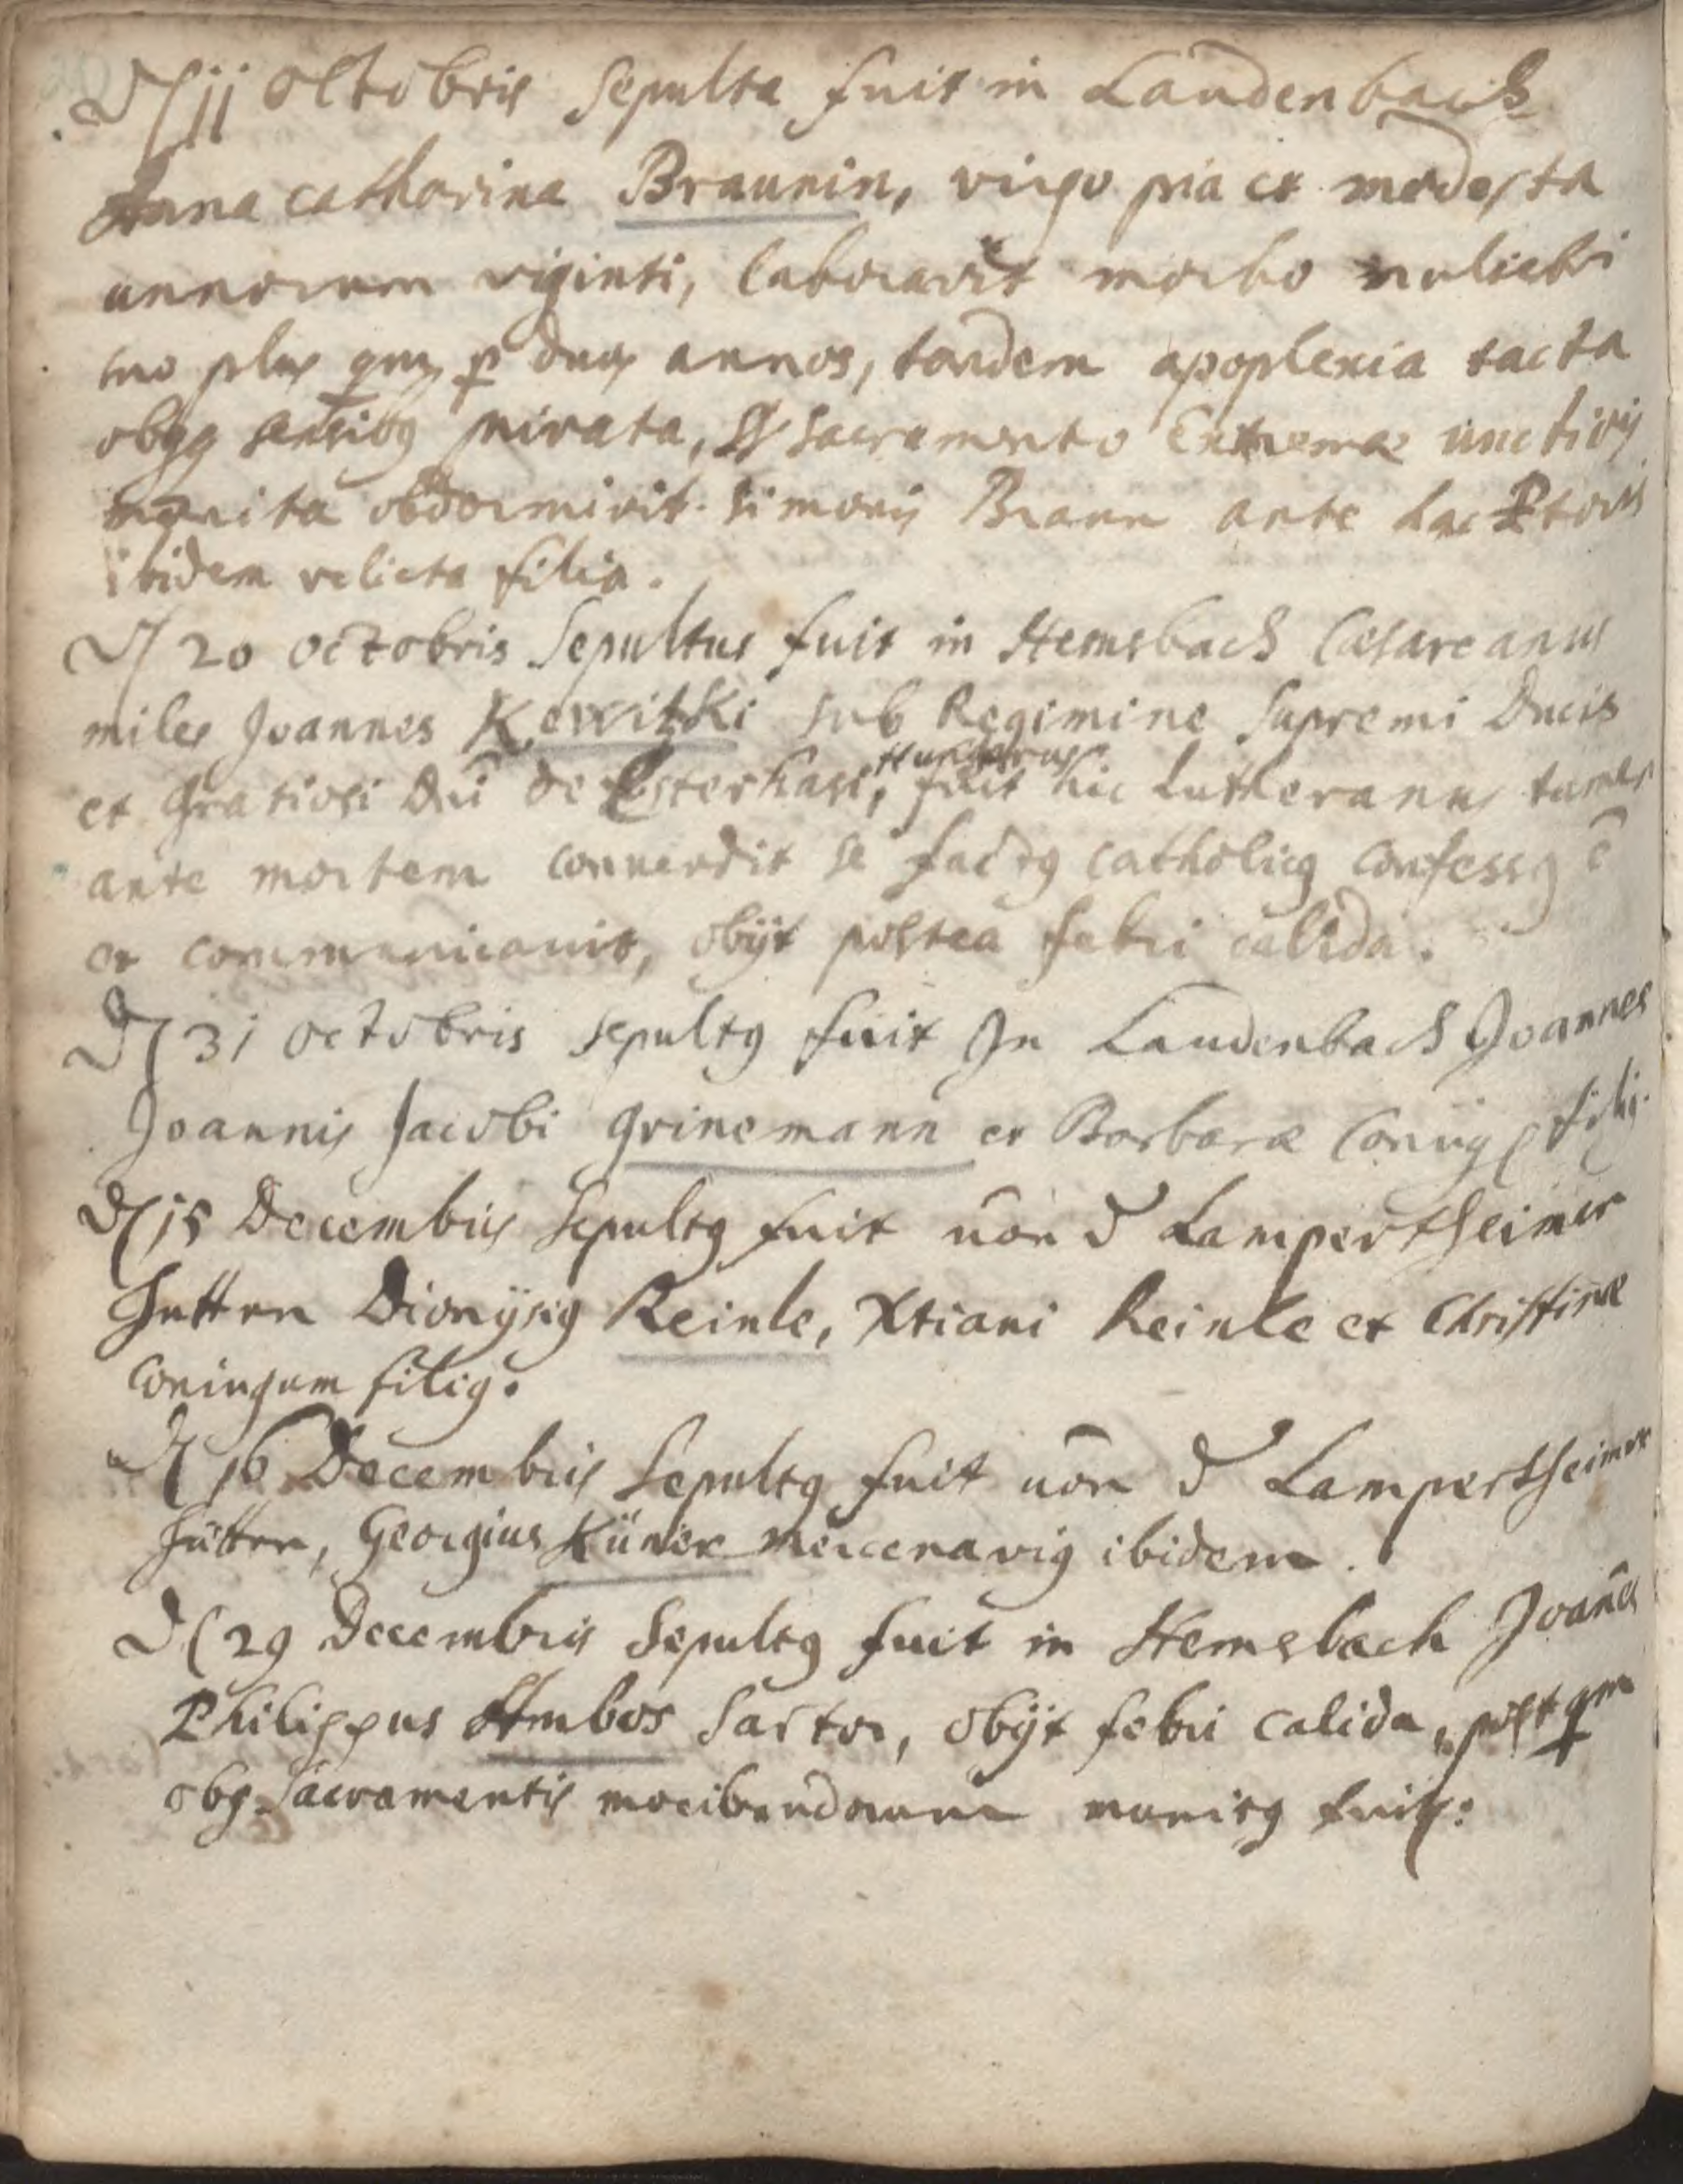 D 11 octobris sepulta fuit in Laudenbach
Anna catharina Braunin, virgo pia et modesta
annorum viginti, laboravit morbo muliebri
suo plus qm p duos annos, tandem apoplexia tacta
obq sensibq privata, sacramento Extremæ unctionis
munita obdormivit. Simonis Braun ante hac Ptoris
ibidem relicta filia.
D 20 octobris Sepultus fuit in Hemsbach Cæsareanus
miles Joannes Kewitzki sub Regimine Supremi Ducis
et Gratiosi Dni de Esterhasi, Hungarus, fuit hic Lutheranus tamen
ante mortem convertit se factq catholicq confessq ē
et communicavit, obijt postea febri calida.
D 31 octobris sepultq fuit In Laudenbach Joannes
Joannis Jacobi Grinemann et Barbaræ Coniug filiq.
D 15 Decembris Sepultq fuit von d Lampertheimer
Hütten Dionysiq Reinle, Xtiani Reinle et Christinæ
Coniugum filiq.
D 16 Decembris Sepultq fuit von d Lampertheimer
Hütten, Georgius Küner mercenariq ibidem.
D 29 Decembris Sepultq fuit in Hemsbach Joañes
Philippus Ambos Sartor, obijt febri calida, postqm
obq Sacramentis moribundorum munitq fuit.